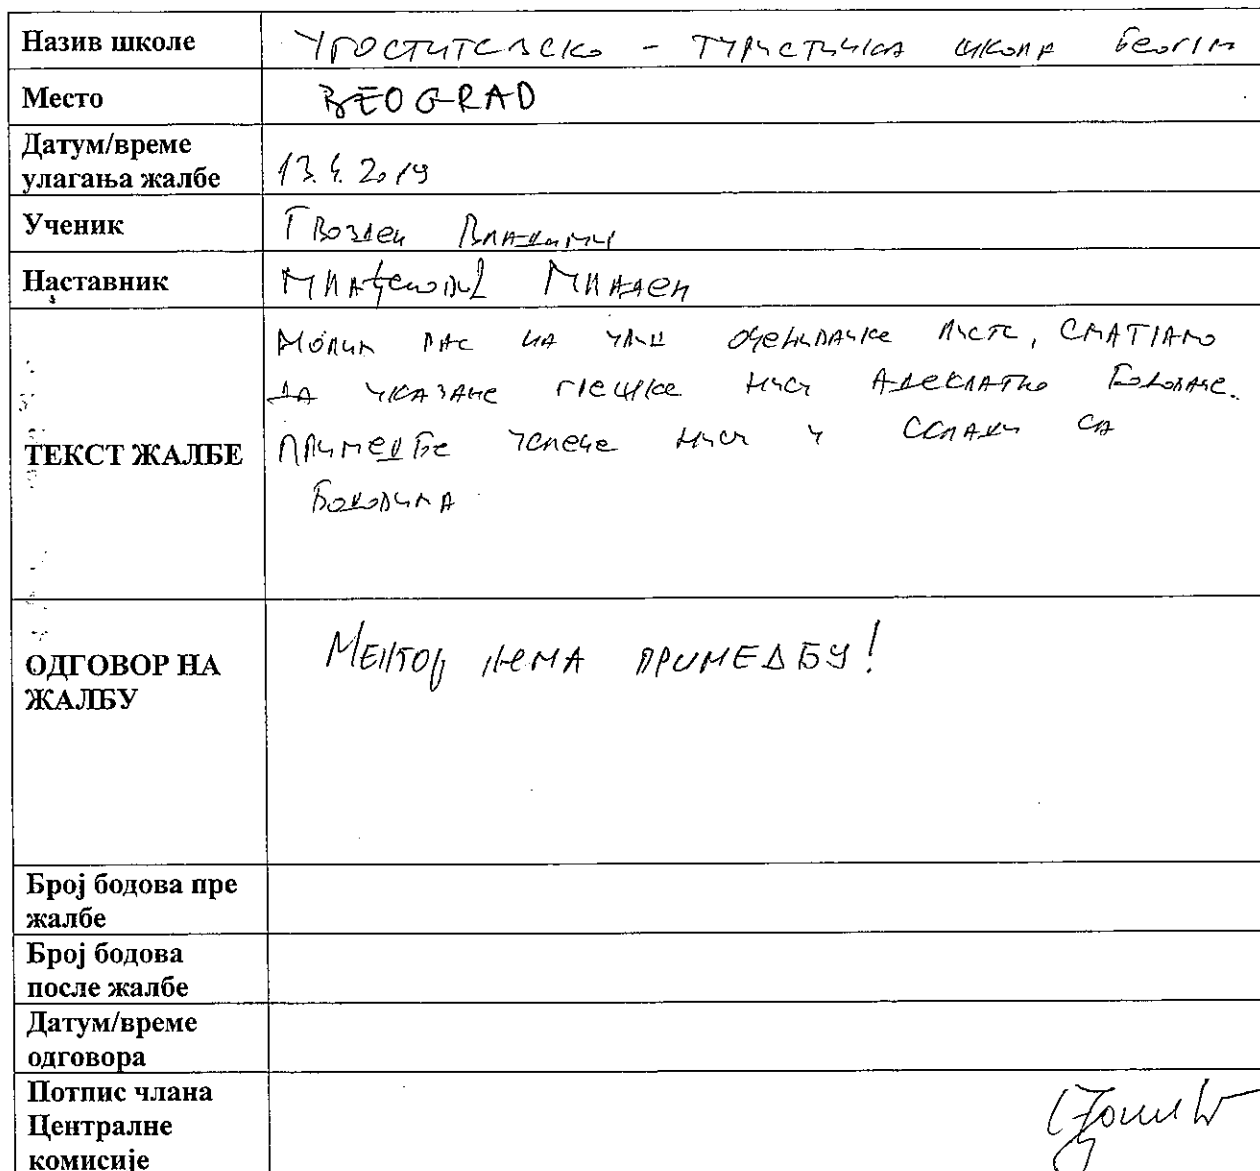 Назив школе
Угоститељско - туристичка школа Београд
Место
BEOGRAD
Датум/време
улагања жалбе
13.4.2019
Ученик
Гвозден
Наставник
Младен
ТЕКСТ ЖАЛБЕ
Молим вас на увид оцењивачке листе, сматрамо
да указане грешке нису адекватно бодоване.
Примедбе нису у складу са
бодовима
ОДГОВОР НА
ЖАЛБУ
МЕНТОР НЕМА ПРИМЕДБУ!
Број бодова пре
жалбе
Број бодова
после жалбе
Датум/време
одговора
Потпис члана
Централне
комисије